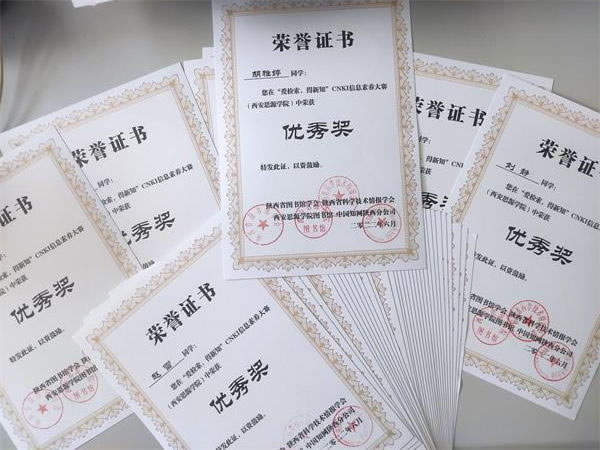 荣誉证书
胡雅婷 同学：
您在“爱检索，得新知”CNKI信息素养大赛
（西安思源学院）中荣获
优秀奖
特发此证，以资鼓励。
陕西省图书馆学会 陕西省科学技术情报学会
西安思源学院图书馆 中国知网陕西分公司
二〇二二年六月
荣誉证书
得新知”CNKI信息素养大赛
中荣获
优秀奖
以资鼓励。
荣誉证书
优秀奖
特发此证，以资鼓励。
陕西省图书馆学会
西安思源学院图书馆
荣誉证书
同学：
您在“爱检索，得新知”CNKI信息素养大赛
（西安思源学院）中荣获
优秀奖
特发此证，以资鼓励。
陕西省图书馆学会 陕西省科学技术情报学会
西安思源学院图书馆 中国知网陕西分公司
荣誉证书
CNKI信息素养大赛
荣誉证书
刘静 同学：
您在“爱检索，得新知”CNKI信息素养大赛
（西安思源学院）中荣获
优秀奖
特发此证，以资鼓励。
陕西省图书馆学会 陕西省科学技术情报学会
西安思源学院图书馆 中国知网陕西分公司
二〇二二年六月